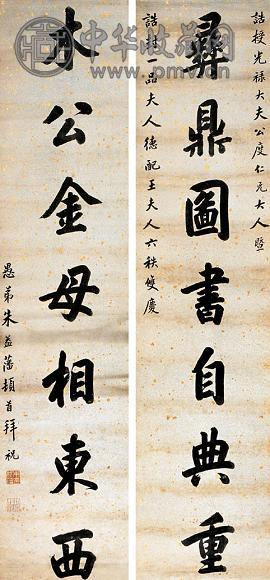 誥授光祿大夫公度仁兄大人暨
彝鼎圖書自典重
誥封一品夫人德配王夫人六秩雙慶
木公金母相東西
愚弟朱益藩頓首拜祝
中华收藏网
www.pmw